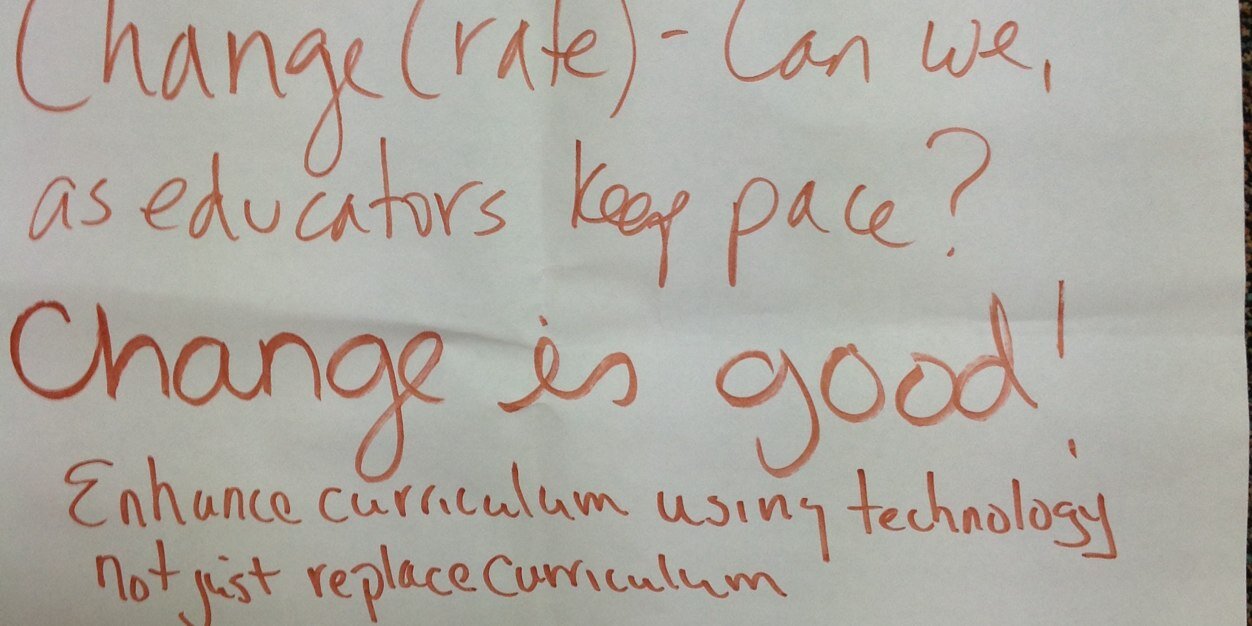 Change (rate) - Can we,
as educators keep pace?
Change is good!
Enhance curriculum using technology
not just replace curriculum